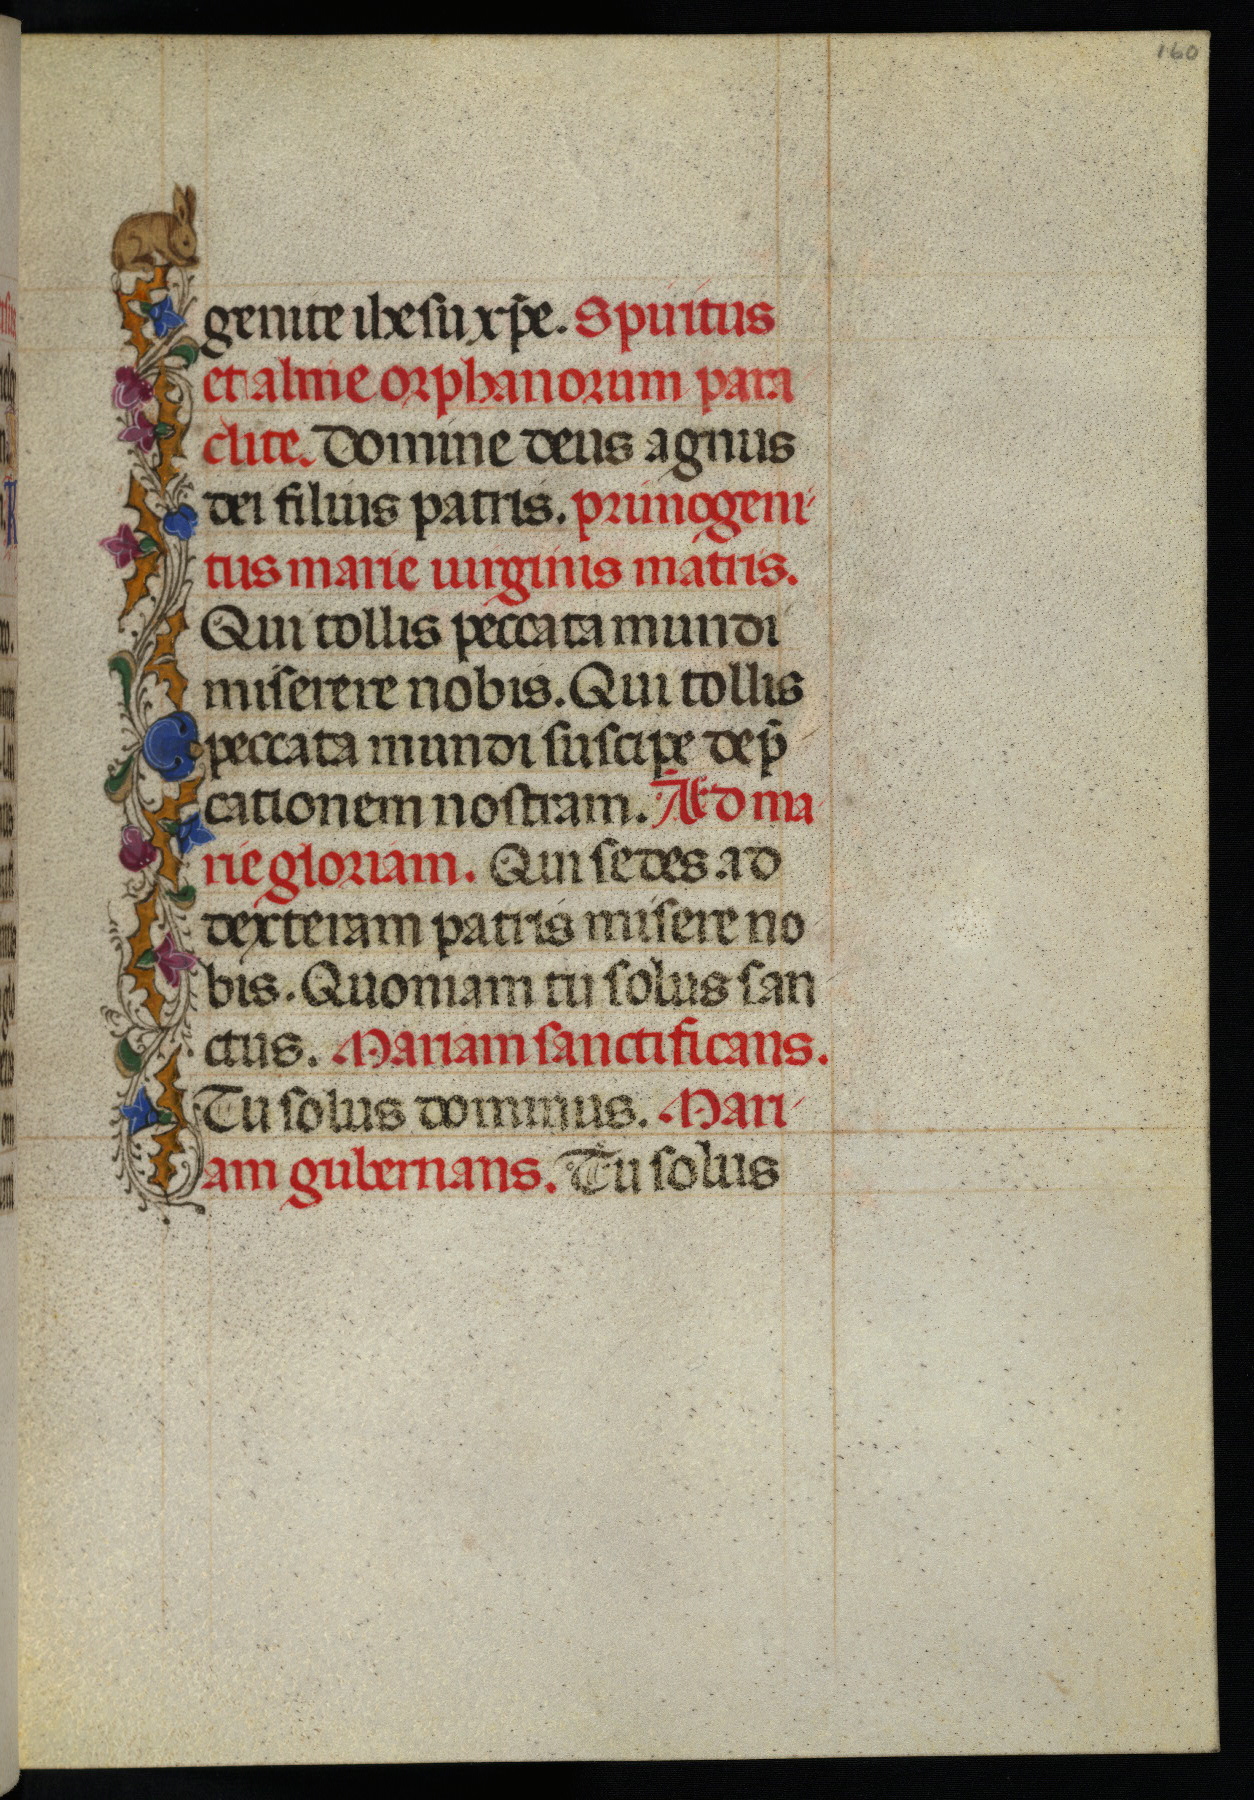 160
genite ihesu xp̄e. Spiritus
et alme orphanorum para
clite. Domine deus agnus
dei filius patris. primogeni
tus marie uirginis matris.
Qui tollis peccata mundi
miserere nobis. Qui tollis
peccata mundi suscipe dep̄
cationem nostram. Ad ma
rie gloriam. Qui sedes ad
dexteram patris misere no
bis. Quoniam tu solus san
ctus. Mariam sanctificans.
Tu solus dominus. Mari
am gubernans. Tu solus